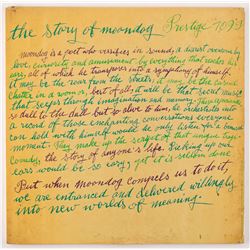 the story of moondog Prestige 7099
moondog is a poet who versifies in sound, a diarist overcome by
love, curiosity and amusement by everything that reaches his
ears, all of which he transposes into a symphony of himself.
it may be the roar from the streets, it may be the
chatter in a room or, best of all, it will be that secret music
that seeps through imagination and memory. They
so dull to the dull but so alive to him he orchestrates into
a record of those enchanting conversations everyone
can hold with himself would he only listen for a
moment. They make up the script of that unique
Comedy, the story of anyone's life. Picking up our
ears would be so easy; yet it is seldom done
But when moondog compels us to do it,
we are entranced and delivered willingly
into new worlds of meaning.